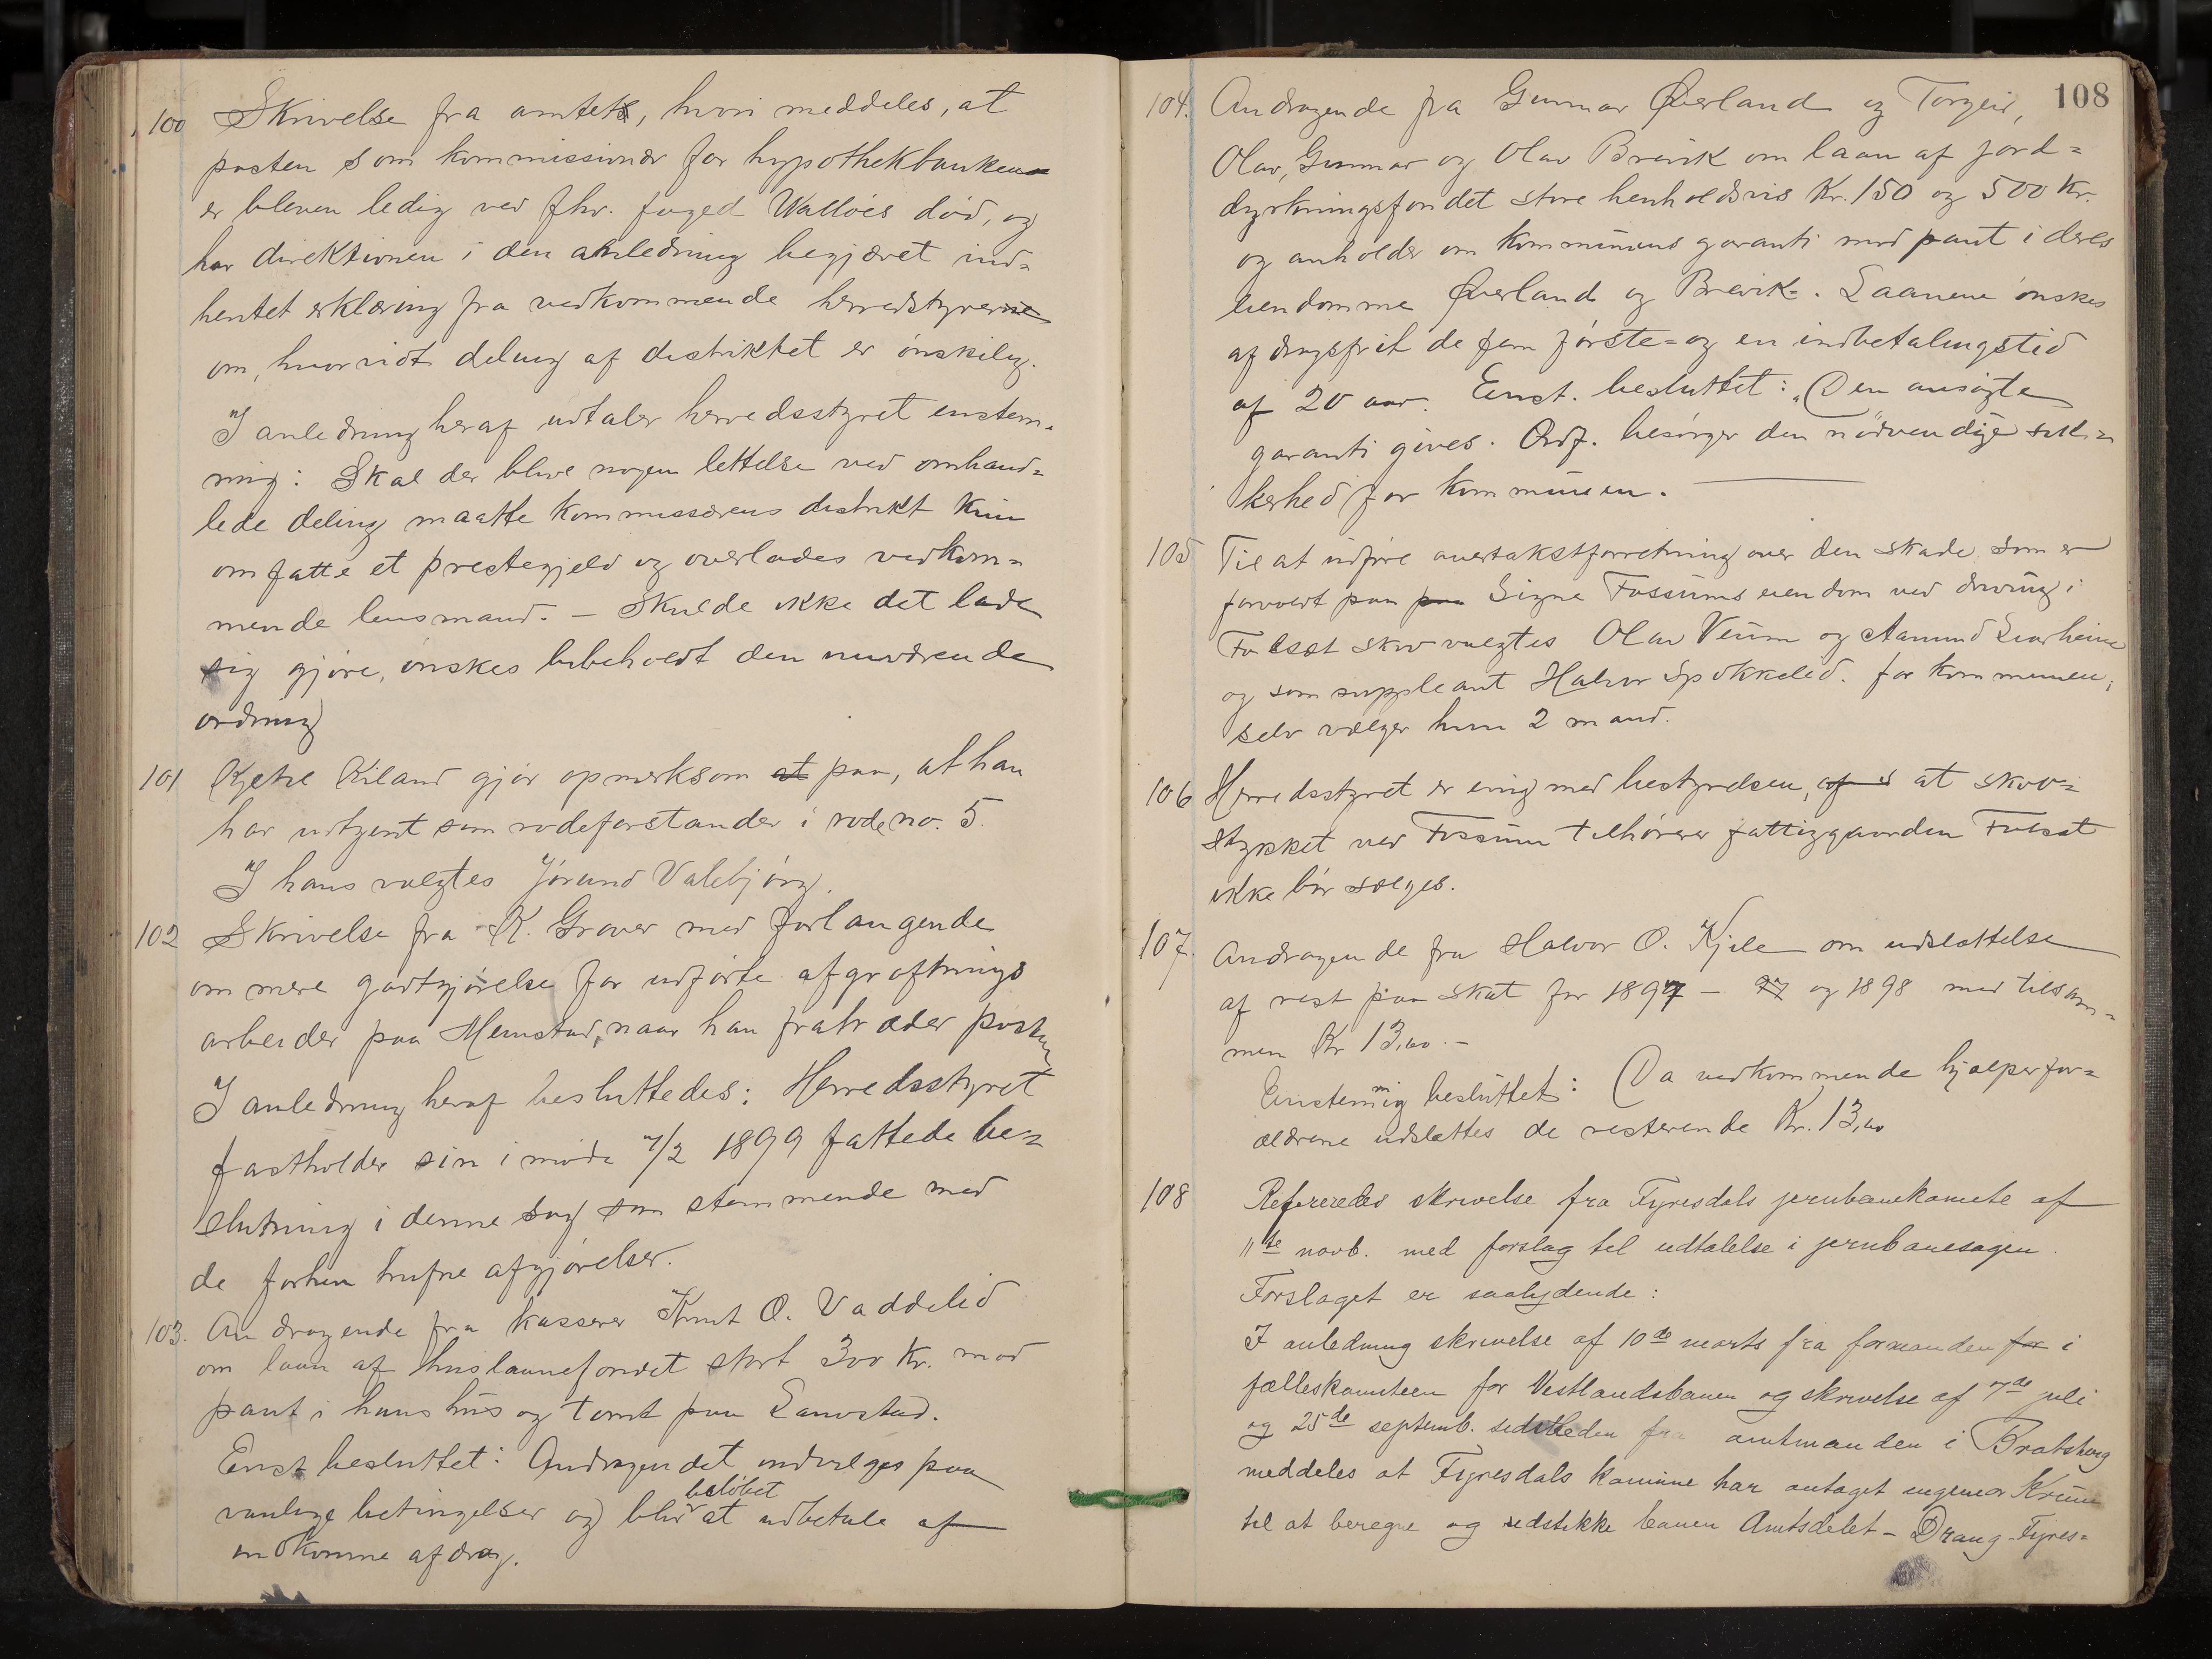 100 Skrivelse fra amtet, hvori meddeles, at
posten som kommissionær for hypothekbanken
er bleven ledig ved fhv. foged Walløes død, og
har direktionen i den anledning begjæret ind-
hentet erklæring fra vedkommende herredstyrer
om, hvorvidt deling af distriktet er ønskelig.
I anledning heraf udtaler herredsstyret enstem-
mig: Skal der blive nogen lettelse ved omhand-
lede deling maatte kommissærens distrikt kun
omfatte et prestegjeld og overlades vedkom-
mende lensmand. – Skulde ikke det lade
sig gjøre, ønskes bibeholdt den nuværende
ordning
101 Kjetil Kiland gjør opmerksom at paa, at han
har udtjent som rodeforstander i rode no. 5.
I hans valgtes Jørund Valebjørg.
102 Skrivelse fra K. Graver med forlangende
om mere godtgjørelse for udførte afgrøftnings
arbeider paa Memstad, naar han fratræder posten
I anledning heraf besluttedes: Herredsstyret
fastholder sin i møde 7/2 1899 fattede be-
slutning i denne sag som stemmende med
de forhen trufne afgjørelser.
103. Andragende fra kasserer Knut O. Vaddelid
om laan af huslaanefondet stort 300 Kr. mod
pant i hans hus og tomt paa Sandstad.
Enst besluttet: Andragendet indvilges paa
vanlige betingelser og blir beløbet at udbetale af
indkomne afdrag.
108
104. Andragende fra Gunnar Øverland og Torgeir,
Olav, Gunnar og Olav Breivik om laan af jord-
dyrkningsfondet store henholdsvis Kr. 150 og 500 Kr.
og anholder om kommunens garanti mod pant i deres
eiendomme Øverland og Breivik. Laanene ønskes
afdragsfrit de fem første- og en indbetalingstid
af 20 aar. Enst. besluttet: "Den ansøgte
garanti gives. Ordf. besørger den nødvendige sik-
kerhed for kommunen.
105 Til at udføre overtakstforretning over den skade som er
forvoldt paa paa Signe Fossums eiendom ved drivning i
Folsæt skov valgtes Olav Veum og Aamund Svarheim
og som suppleant Halvor Spokkelid. for kommunen;
selv vælger hun 2 mand.
106 Herredsstyret er enig med bestyrelsen, af s at skov-
stykket ved Fossum tilhører fattiggaarden Folsæt
ikke bør sælges.
107. Andragende fra Halvor O. Kjile om udslettelse
af rest paa skat for 1897 – 97 og 1898 med tilsam-
men Kr 13,60. –
Enstemmig besluttet: Da vedkommende hjælper for-
ældrene udslettes de resterende Kr. 13,60
108 Refereredes skrivelse fra Fyresdals jernbanekomite af
11te novb. med forslag til udtalelse i jernbanesagen.
Forslaget er saalydende:
I anledning skrivelse af 10de marts fra formanden for i
fælleskomiteen for Vestlandsbanen og skrivelse af 7de juli
og 25de septemb. sidstleden fra amtmanden i Bratsberg
meddeles at Fyresdals komune har antaget ingeniør Krum
til at beregne og udstikke banen Amtsdelet – Drang – Fyres-